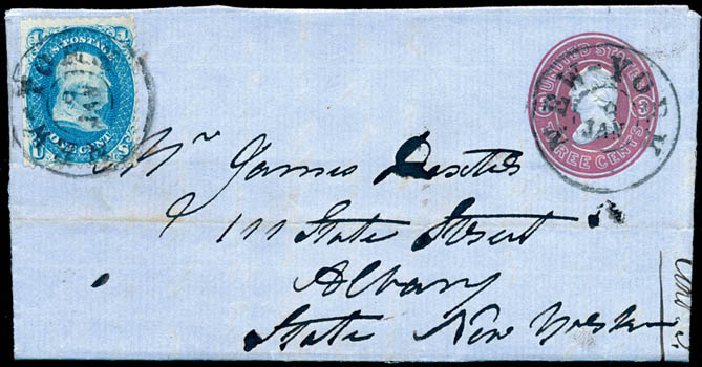 U.S. POSTAGE
ONE CENT
UNITED STATES
THREE CENTS
NEW-YORK
JAN
Mr James
111 State Street
Albany
State New York